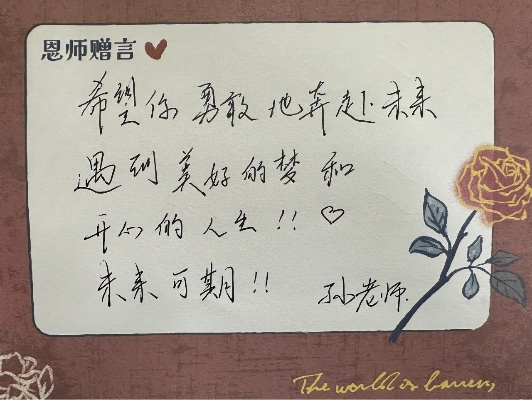 恩师赠言
希望你勇敢地奔赴未来
遇到美好的梦和
开心的人生!! ♡
未来可期!!
孙老师.
The world is barren,